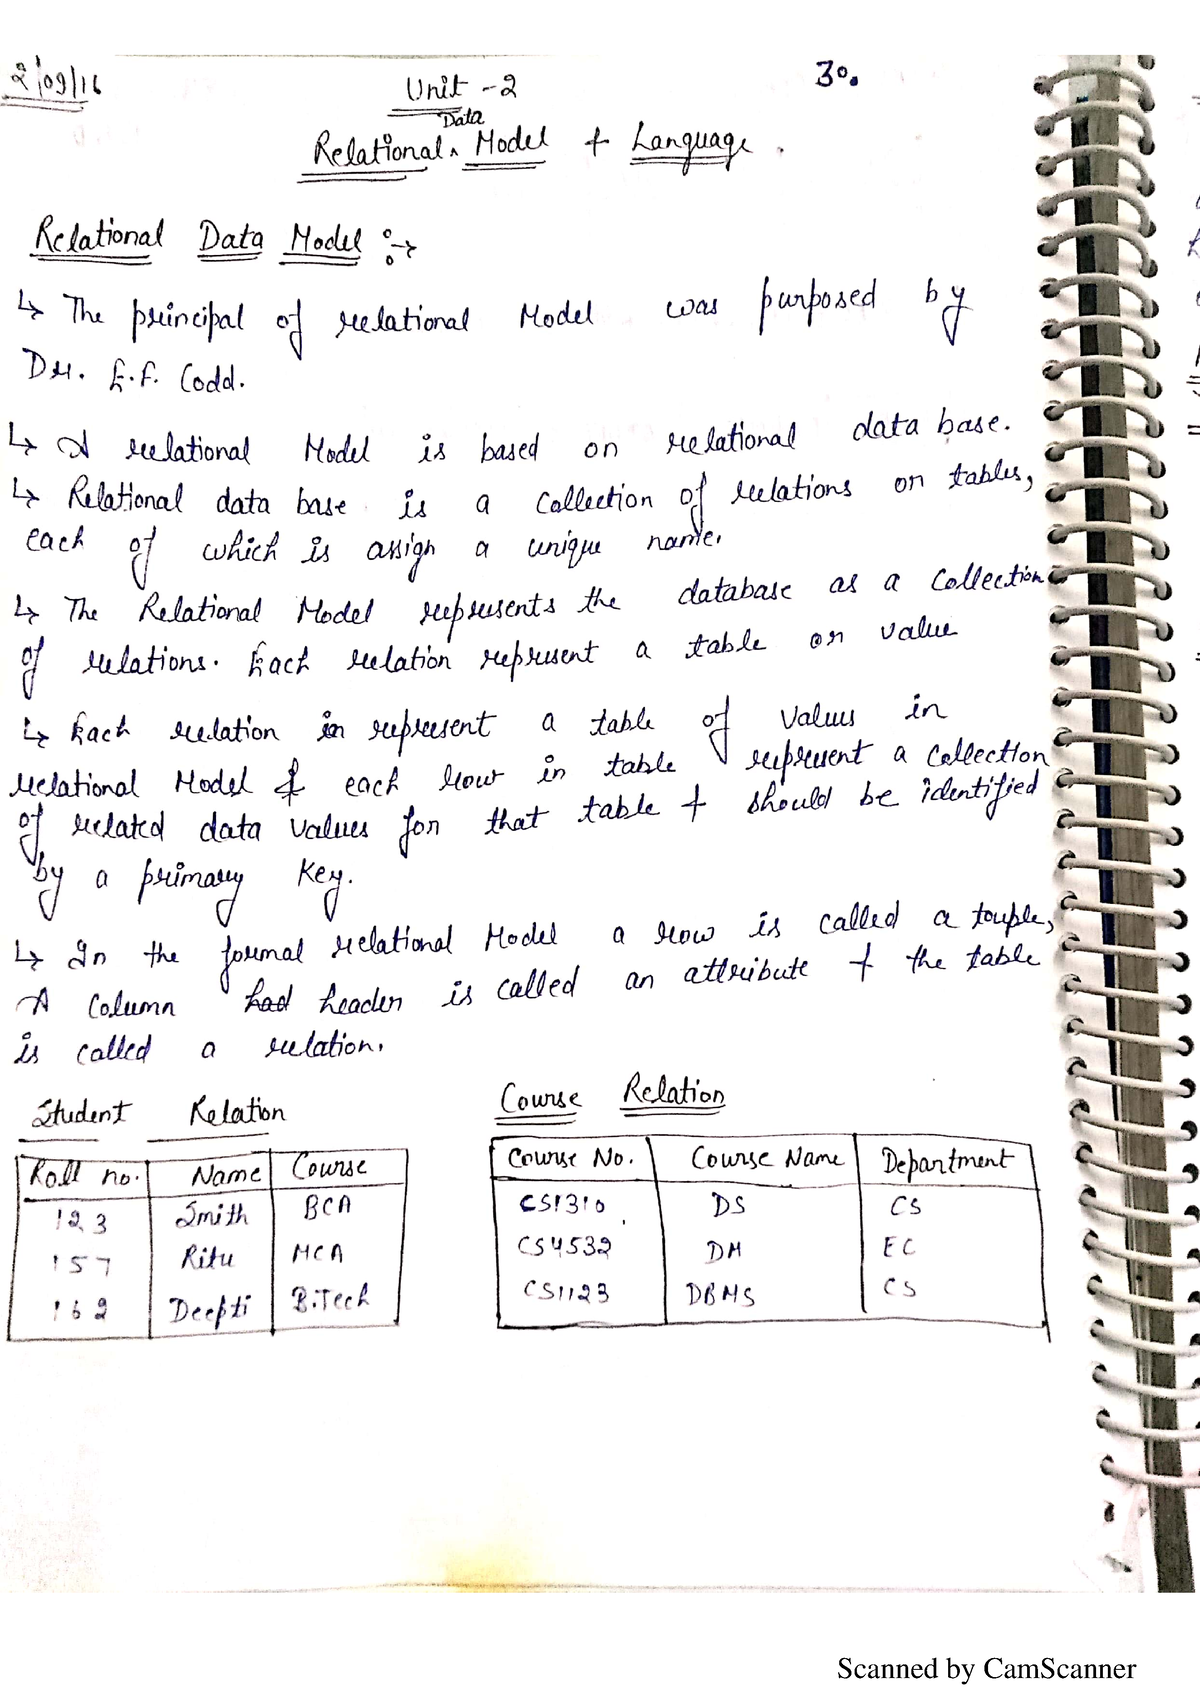 2/09/16
Unit -2
30.
Data
Relational ^ Model + Language .
Relational Data Model :→
↳ The principal of relational Model was purposed by
Dr. E.F. Codd.
↳ A relational Model is based on relational data base.
↳ Relational data base is a collection of relations or tables,
each of which is assign a unique name.
↳ The Relational Model represents the database as a collection
of relations. Each relation represent a table or value
↳ Each relation in represent a table of values in
relational Model & each row in table represent a collection
of related data values for that table + should be identified
by a primary key.
↳ In the formal relational Model a row is called a touple,
A column had header is called an attribute + the table
is called a relation.
Student Relation
Course Relation
Roll no. Name Course
Course No. Course Name Department
123 Smith BCA
CS1310 DS CS
157 Ritu MCA
CS4532 DM EC
162 Deepti B.Tech
CS1123 DBMS CS
Scanned by CamScanner